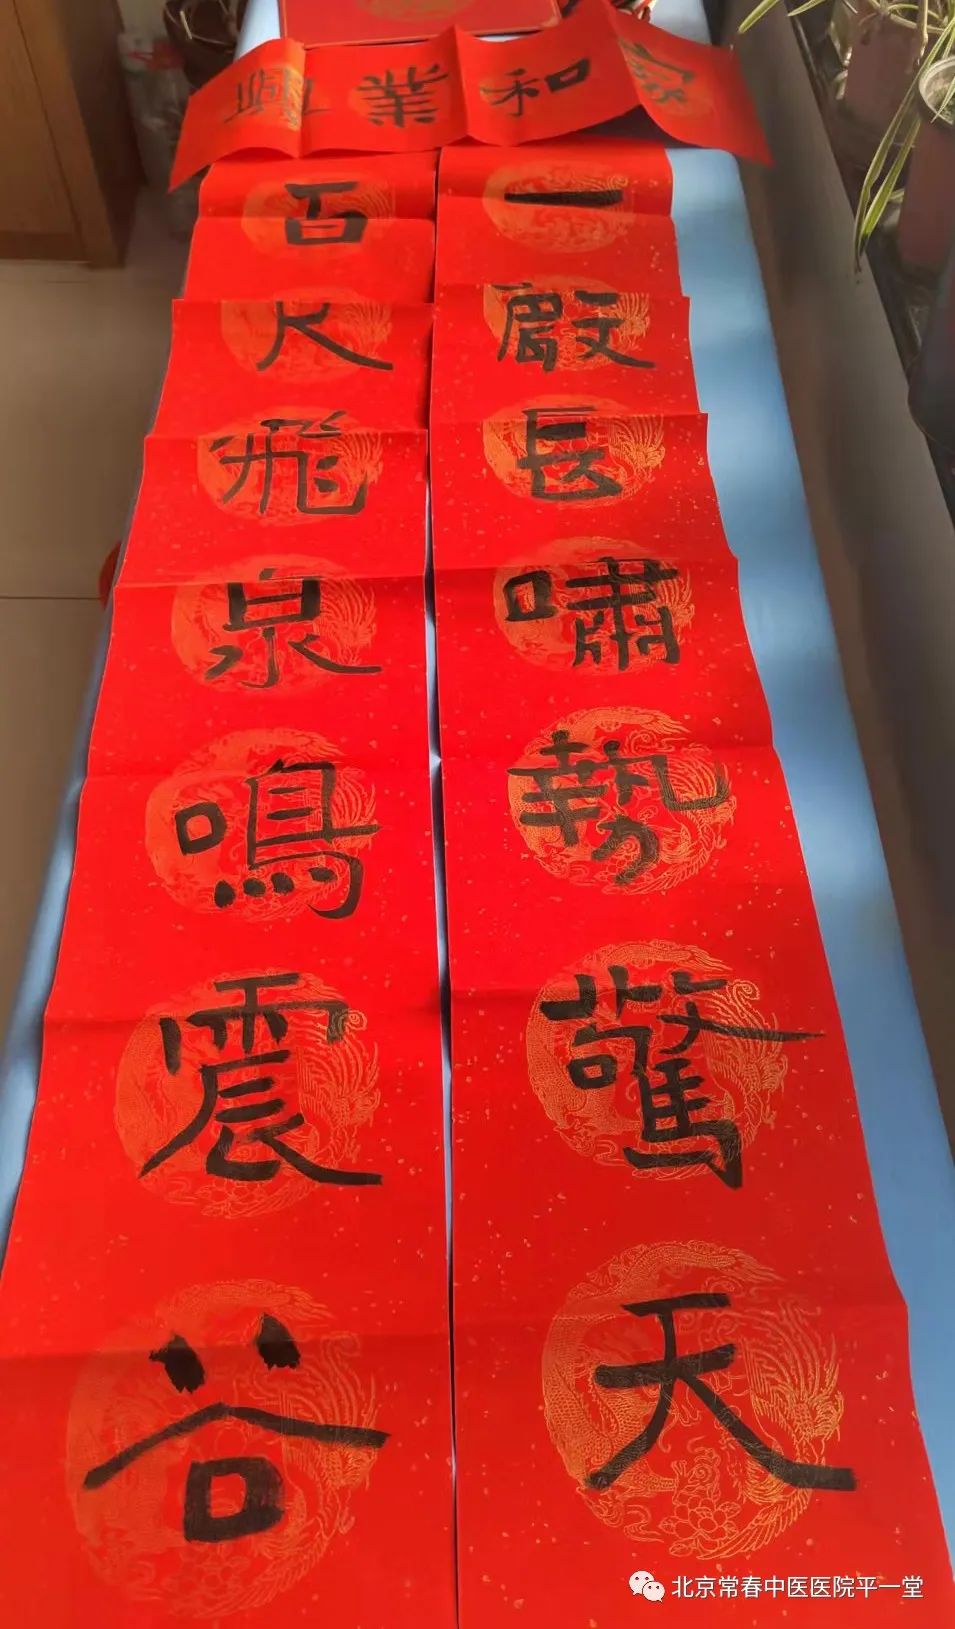 家和業興
一長嘯勢驚天
百尺飛泉鳴震谷
北京常春中医医院平一堂